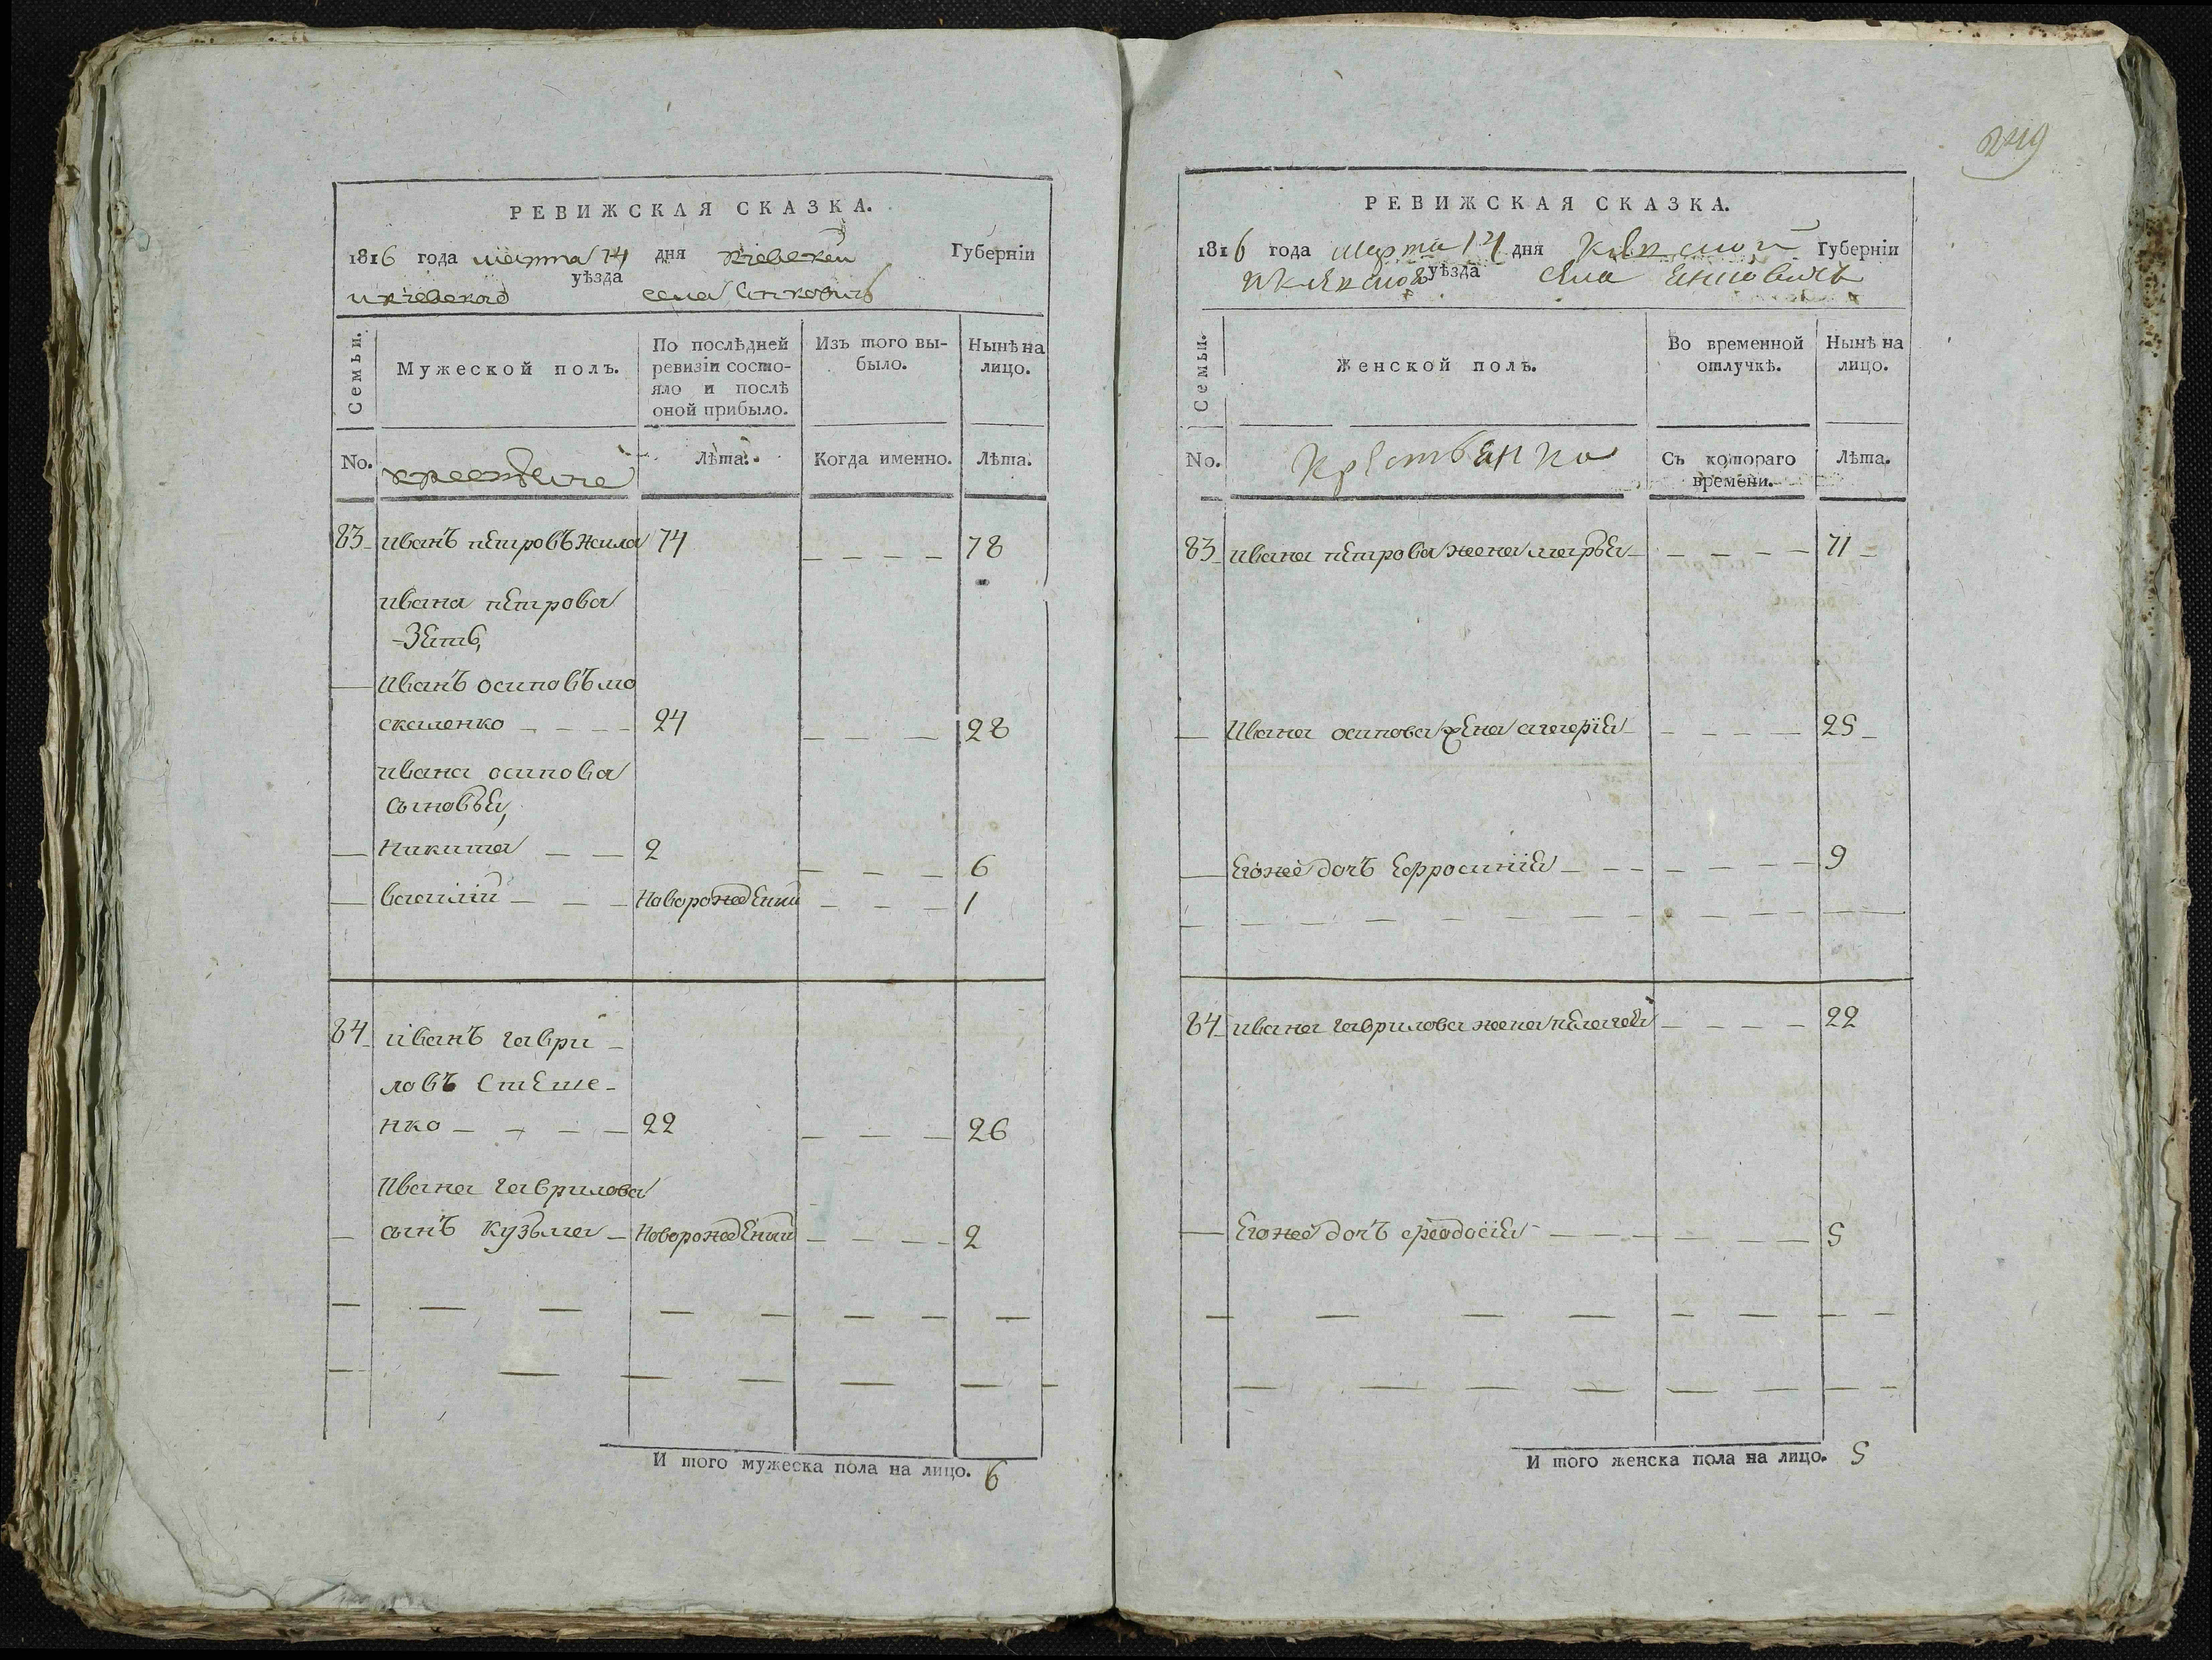 РЕВИЖСКАЯ СКАЗКА.
1816 года марта 14 дня киевской Губерніи
и киевского уѣзда села
Семьи.
Мужеской полъ.
По послѣдней ревизіи состо-
яло и послѣ
оной прибыло.
Изъ того вы-
было.
Нынѣ на
лицо.
No.
крестьяне
Лѣта.
Когда именно.
Лѣта.
83 иванъ петровъ жила 74 78
ивана петрова
зять
Иванъ осиповъ мо
скаленко 24 28
ивана осипова
сыновья,
Никита 2 6
василій Новорожденый 1
84 иванъ гаври
ловъ Стеше-
нко 22 26
Ивана гаврилова
сынъ кузьма Новорожденый 2
И того мужеска пола на лицо. 6
249
РЕВИЖСКАЯ СКАЗКА.
1816 года марта 14 дня Губерніи
уѣзда села
Семьи.
Женской полъ.
Во временной
отлучкѣ.
Нынѣ на
лицо.
No.
Крестьянка
Съ котораго
времени.
Лѣта.
83 ивана петрова жена марья 71
Ивана осипова жена 25
Егоже дочъ Ефросинія 9
84 ивана гаврилова жена пелагея 22
Егоже дочъ феодосія 5
И того женска пола на лицо. 5